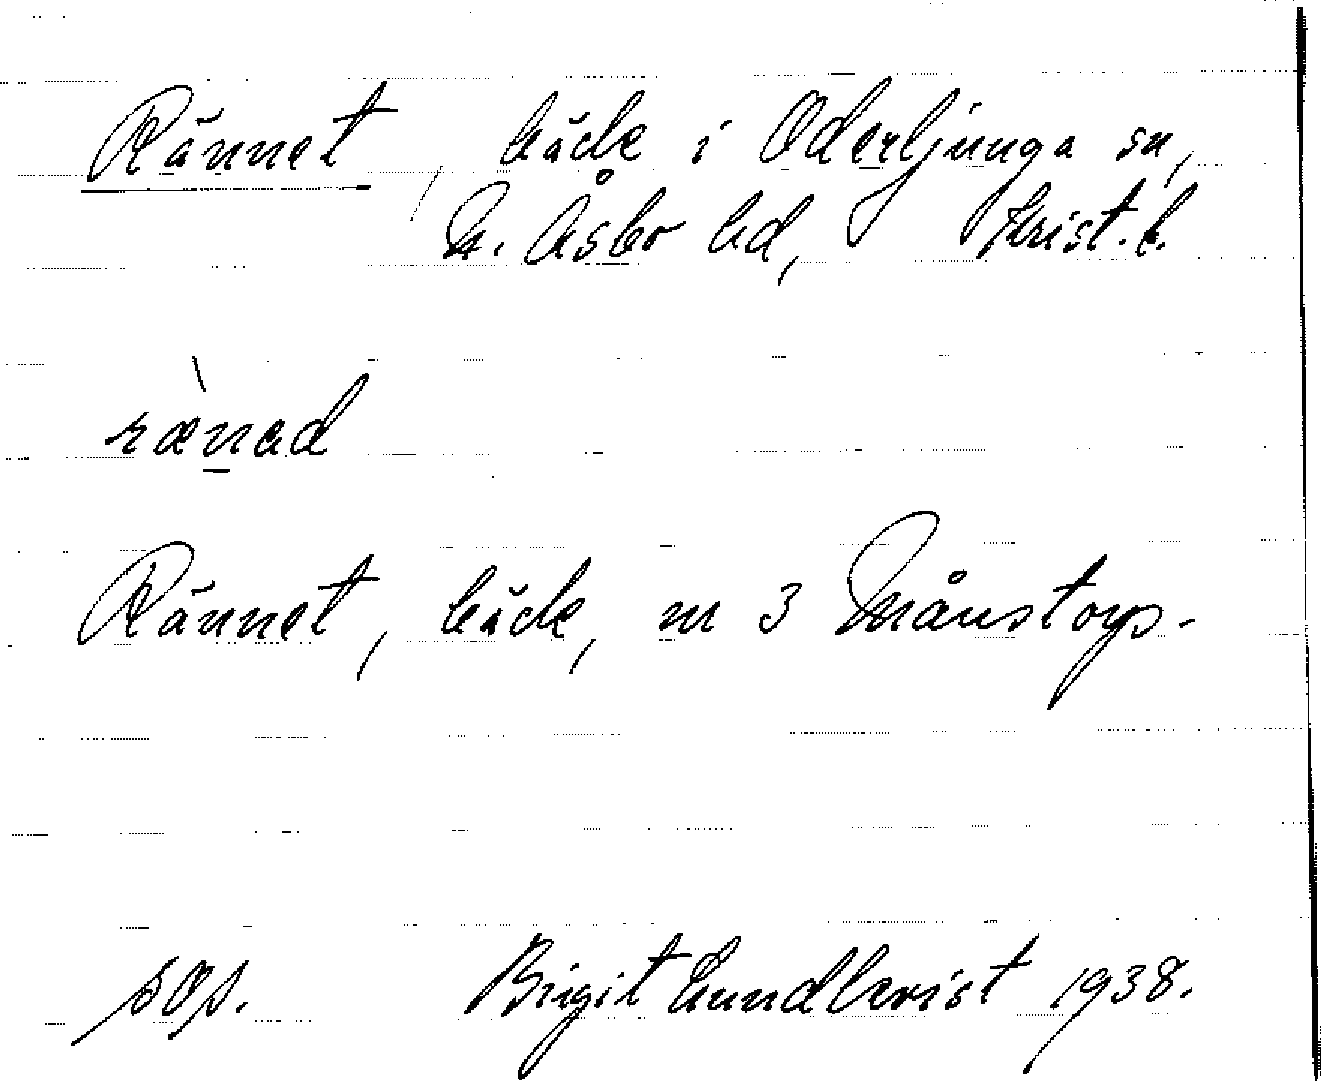 Rännet, bäck i Oderljunga sn,
N. Åsbo hd, Krist. l.
rænad
Rännet, bäck, m 3 Månstorp.
sop. Birgit Lundkvist 1938.